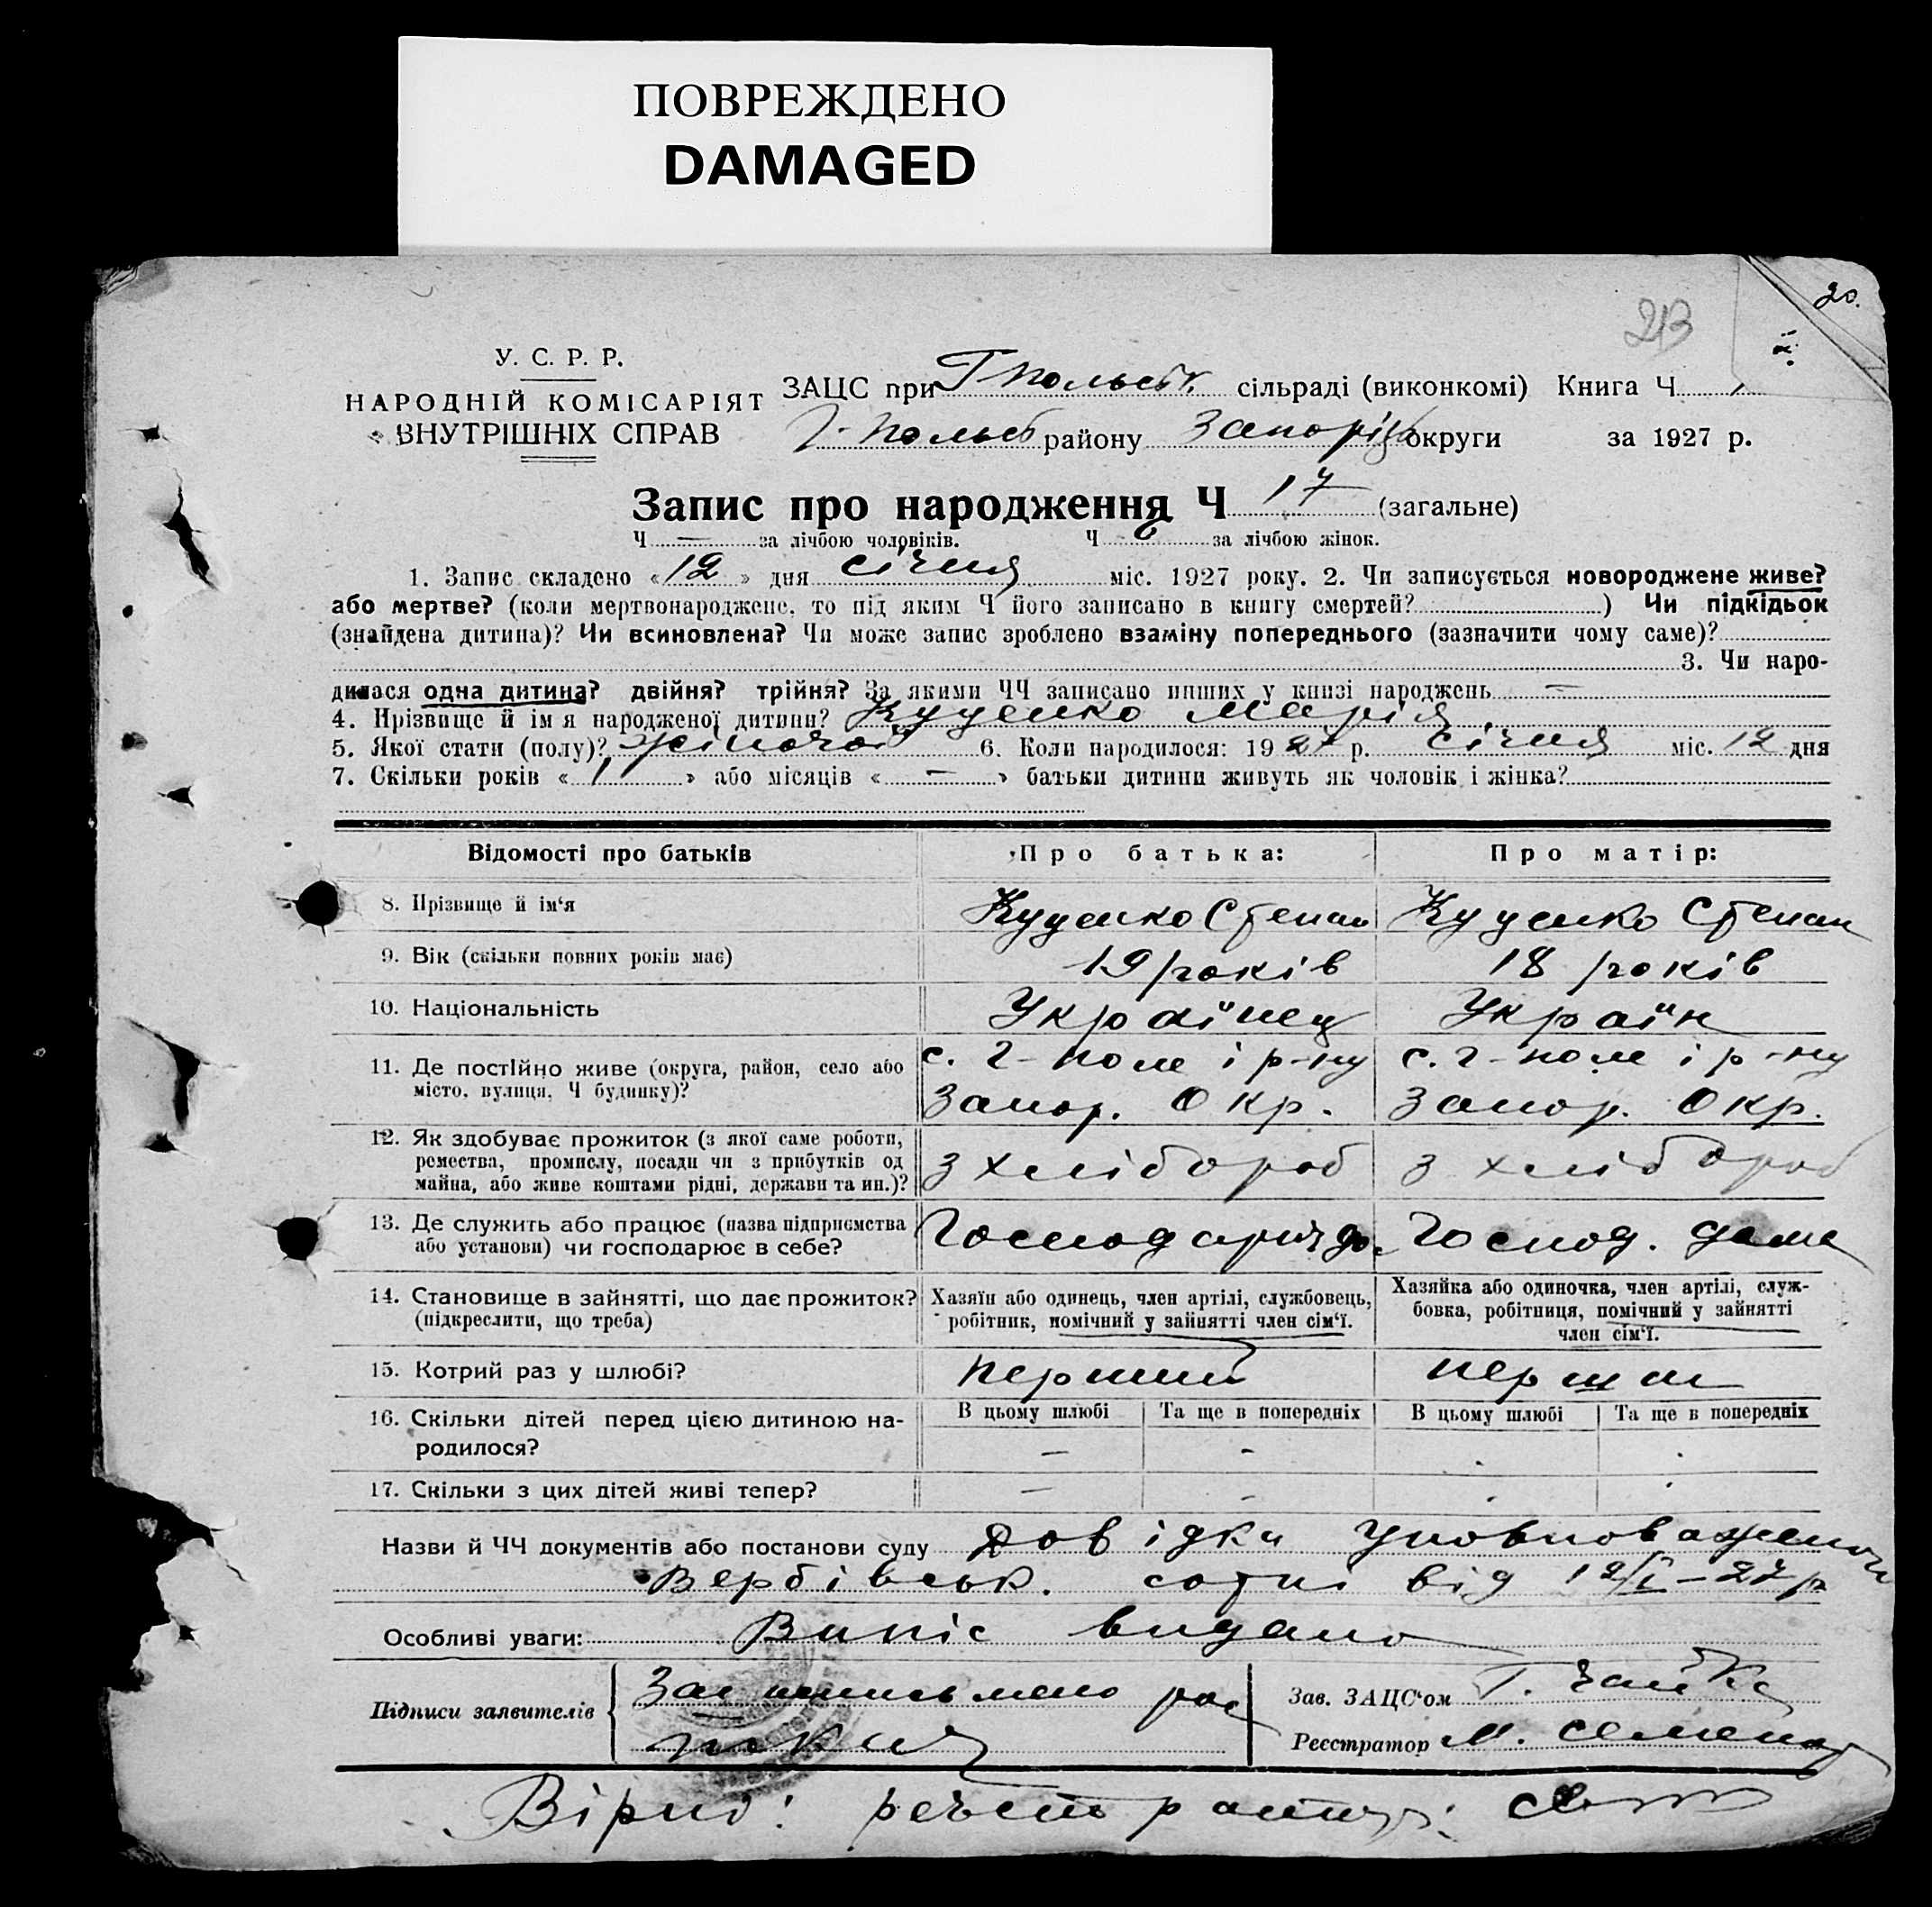 ПОВРЕЖДЕНО
DAMAGED
213
20.
У. С. Р. Р.
НАРОДНІЙ КОМІСАРІЯТ
ВНУТРІШНІХ СПРАВ
ЗАЦС при Г польськ. сільраді (виконкомі) Книга Ч 1
Г-польськ району Запоріз округи за 1927 р.
Запис про народження Ч 17 (загальне)
Ч — за лічбою чоловіків. Ч 6 за лічбою жінок.
1. Запис складено «12» дня січня міс. 1927 року. 2. Чи записується новороджене живе?
або мертве? (коли мертвонароджене, то під яким Ч його записано в книгу смертей? ) Чи підкідьок
(знайдена дитина)? Чи всиновлена? Чи може запис зроблено взаміну попереднього (зазначити чому саме)?
3. Чи наро-
дилася одна дитина? двійня? трійня? За якими ЧЧ записано инших у книзі народжень —
4. Прізвище й ім'я народженої дитини? Куценко Марія.
5. Якої стати (полу)? жіночої 6. Коли народилося: 1927 р. січня міс. 12 дня
7. Скільки років «1» або місяців «—» батьки дитини живуть як чоловік і жінка?
Відомості про батьків Про батька: Про матір:
8. Прізвище й ім'я Куценко Степан Куценко Степан
9. Вік (скільки повних років має) 19 років 18 років
10. Національність Українец Україн
11. Де постійно живе (округа, район, село або с. Г-поле і р-ну с. Г-поле і р-ну
місто, вулиця, Ч будинку)? Запор. Окр. Запор. Окр.
12. Як здобуває прожиток (з якої саме роботи,
ремества, промислу, посади чи з прибутків од з хлібороб з хлібороб
майна, або живе коштами рідні, держави та ин.)?
13. Де служить або працює (назва підприємства Господ. дома
або установи) чи господарює в себе?
14. Становище в зайнятті, що дає прожиток? Хазяїн або одинець, член артілі, службовець, Хазяйка або одиночка, член артілі, служ-
(підкреслити, що треба) робітник, помічний у зайнятті член сім'ї. бовка, робітниця, помічний у зайнятті
член сім'ї.
15. Котрий раз у шлюбі? перший перши
16. Скільки дітей перед цією дитиною на- В цьому шлюбі Та ще в попередніх В цьому шлюбі Та ще в попередніх
родилося? — -
17. Скільки з цих дітей живі тепер? — -
Назви й ЧЧ документів або постанови суду Довідка Уповноваженого
Вербівськ. сотні від 12/I-27 р
Особливі уваги: Випіс видано
Підписи заявителів За
Зав. ЗАЦС'ом Г. Чайка
Реєстратор М. Семен
Вірно: